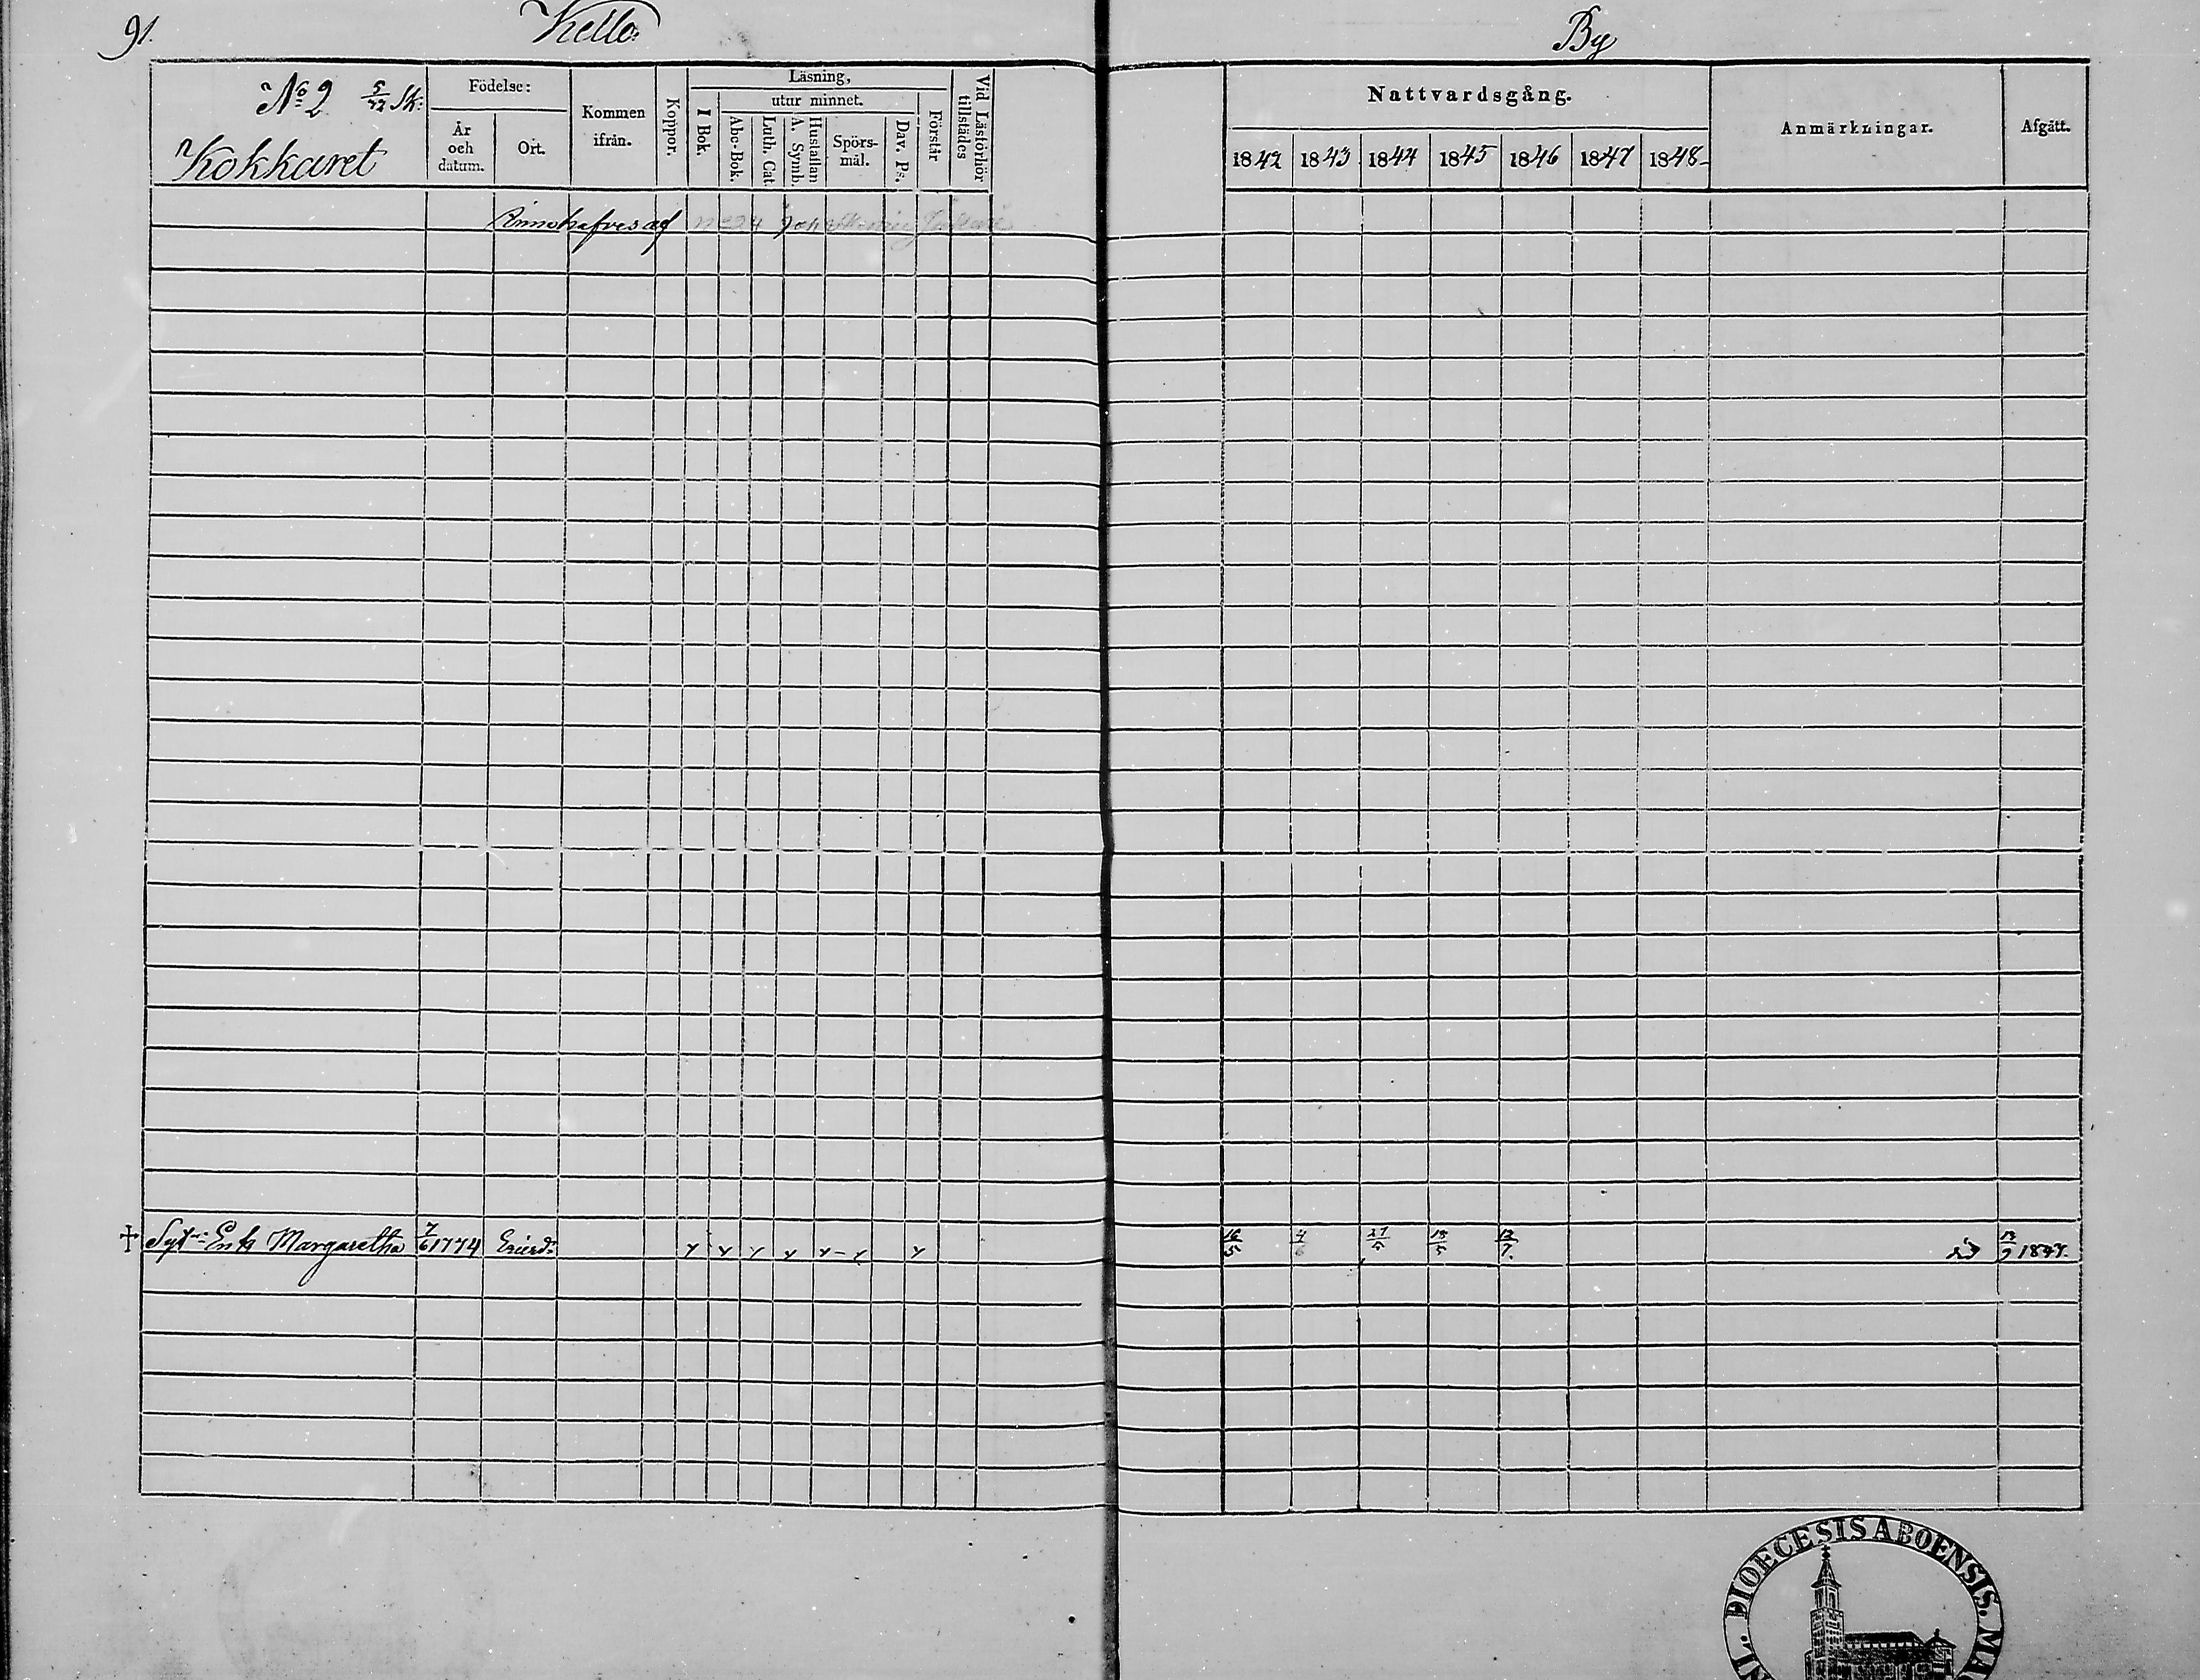 91. Kello By
No 2 5/22 Sk:
Kokkaret
Födelse:
År och datum.
Ort.
Kommen ifrån.
Koppor.
Läsning,
I Bok.
utur minnet.
Abc-Bok.
Luth. Cat.
A. Symb.
Hustaflan
Spörs-mål.
Dav. Ps.
Förstår
Vid Läsförhör tillstädes
Nattvardsgång.
1842 1843 1844 1845 1846 1847 1848
Anmärkningar.
Afgått.
af
† Enk Margaretha 7/6 1774 16/5 4/6 27/5 18/5 12/7. död 1847.
DIOECESIS ABOENSIS.